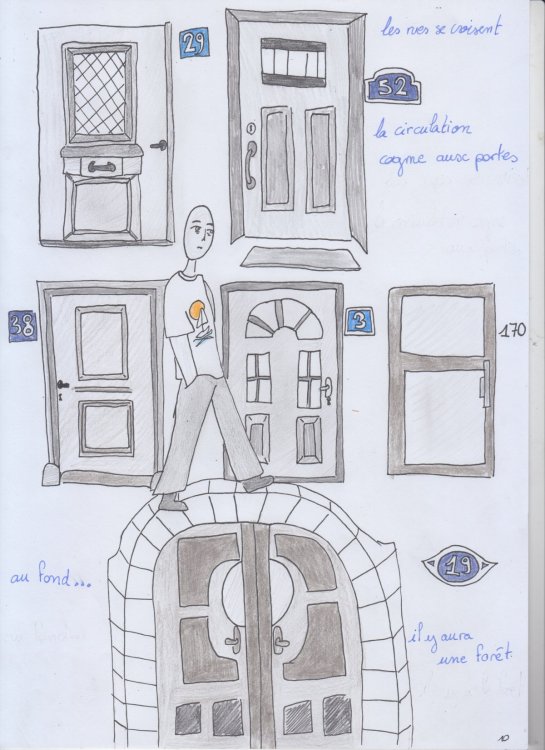 29
les rues se croisent
52
la circulation
cogne aux portes
38
3
170
au fond...
19
il y aura
une forêt.
10